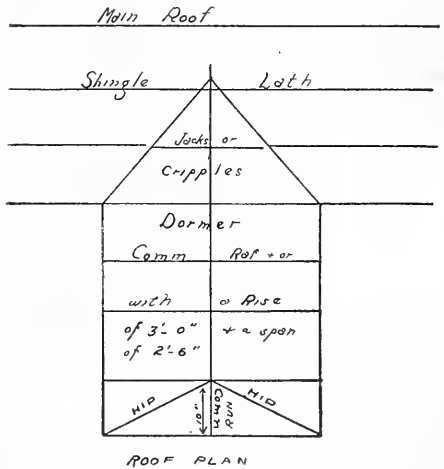 Main Roof
Shingle Lath
Jacks or
Cripples
Dormer
Comm Raf + or
with a Rise
of 3'-0" + a span
of 2'-6"
HIP HIP
Comm
ROOF PLAN